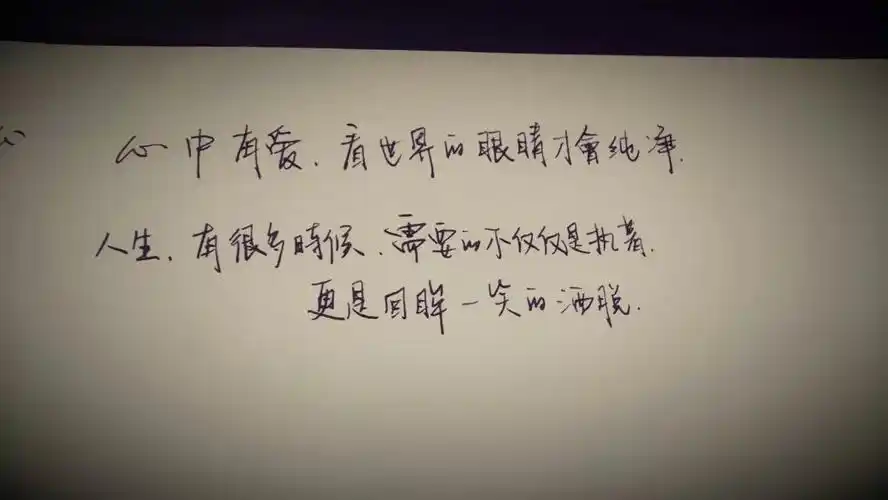 心中有爱.看世界的眼睛才會纯净.
人生.有很多時候.需要的不仅仅是执著.
更是回眸一笑的洒脱.